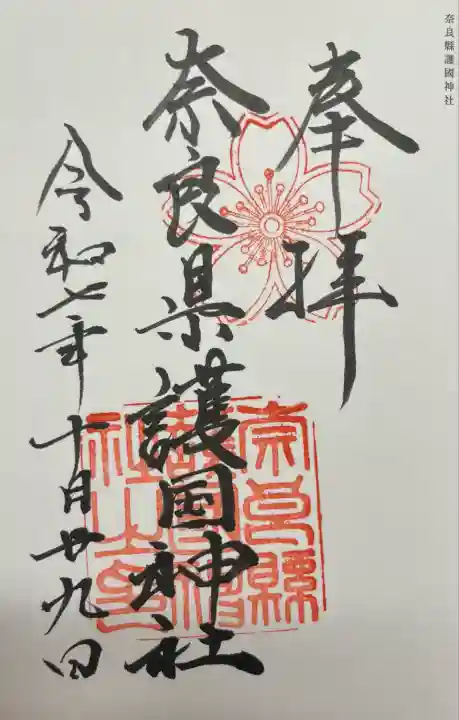 奈良縣護國神社
奉拝
奈良県護国神社
令和七年十月廿九日
奈良縣
護國神
社之印